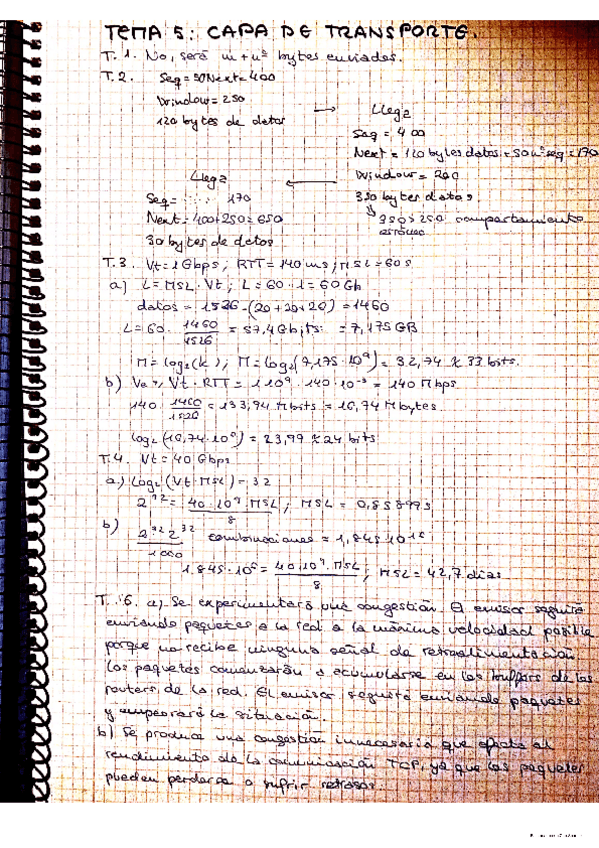 TEMA 5: CAPA DE TRANSPORTE.
T.1. No, será m+nº bytes enviados.
T.2. Seq=50 Next=400
Window=250
120 bytes de datos
→ Llega
Seq = 400
Next = 120 bytes datos + 50 nº seq = 170
Window = 200
350 bytes datos
350 > 250 comportamiento
erróneo
← Llega
Seq = 170
Next = 400+250=650
30 bytes de datos
T.3. Vt=1Gbps; RTT=140 ms; MSL=60s
a) L=MSL·Vt; L=60·1=60Gb
datos = 1526-(20+20+20) = 1460
L=60· 1460/1526 = 57,4Gbits = 7,175GB
M=log₂(k); M=log₂(7,175·10⁹) = 32,74 ≈ 33 bits.
b) Vt·RTT = 1·10⁹·140·10⁻³ = 140 Mbps
140· 1460/1526 = 133,94 Mbits = 16,74 Mbytes
log₂(16,74·10⁶) = 23,99 ≈ 24 bits
T.4. Vt=40 Gbps
a) Log₂(Vt·MSL)=32
2³² = 40·10⁹·MSL/8; MSL = 0,858993
b) 2³²·2³²/1000 combinaciones = 1,845·10¹⁶
1.845·10¹⁶ = 40·10⁹·MSL/8; MSL=42,7 días
T. 6. a) Se experimentará una congestión. El emisor seguirá
enviando paquetes a la red a la máxima velocidad posible
porque no recibe ninguna señal de retroalimentación
Los paquetes comenzarán a acumularse en los buffers de los
routers de la red. El emisor seguirá enviando paquetes
y empeorará la situación.
b) Se produce una congestión innecesaria que afecta al
rendimiento de la comunicación TCP, ya que los paquetes
pueden perderse o sufrir retrasos.